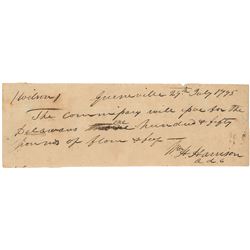 (Wilson) Greeneville 29th July 1795
The commissary will issue for the
Delawares one hundred & fifty
pounds of flour & beef
Wm. H. Harrison
a d c